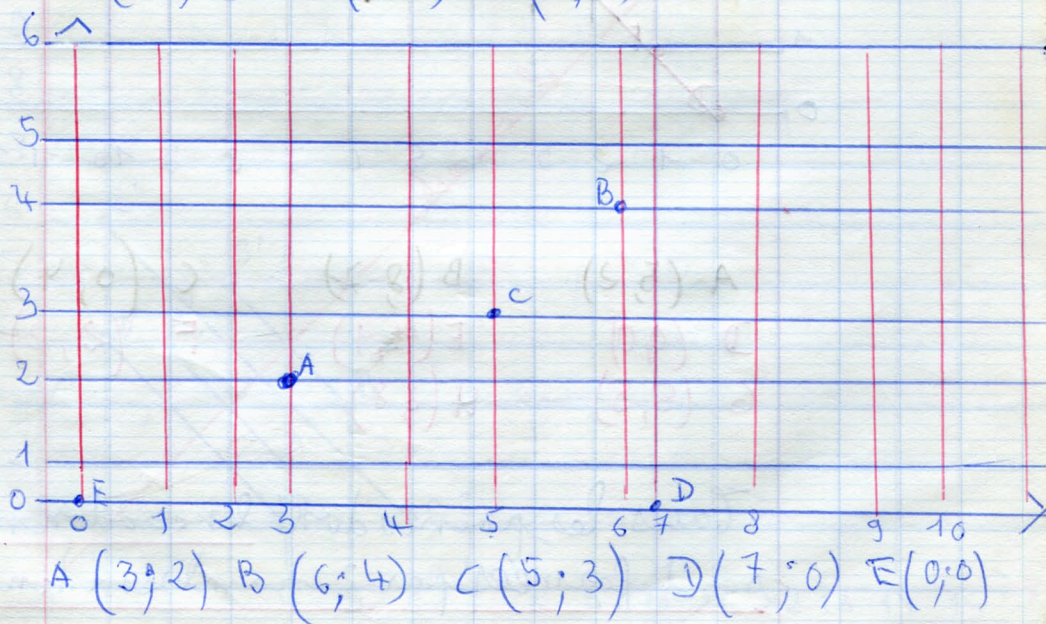 6
5
4
B
3 C
2 A
1
0 E D
0 1 2 3 4 5 6 7 8 9 10
A (3;2) B (6;4) C (5;3) D (7;0) E (0;0)